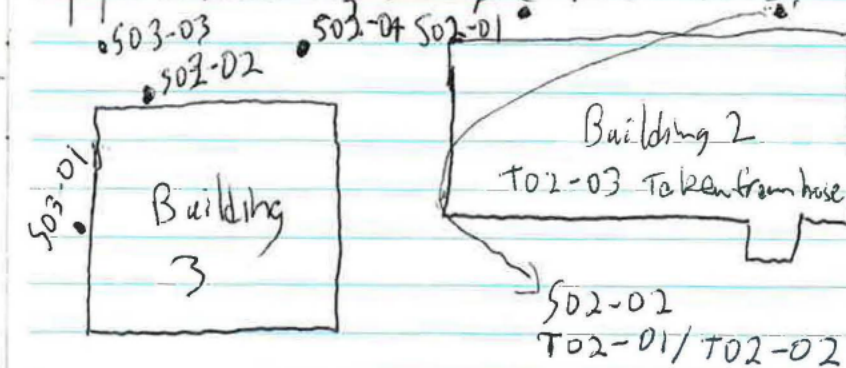 S03-03
S03-04
S02-01
S03-02
S03-01
Building
3
Building 2
T02-03 Taken from hose
S02-02
T02-01/T02-02